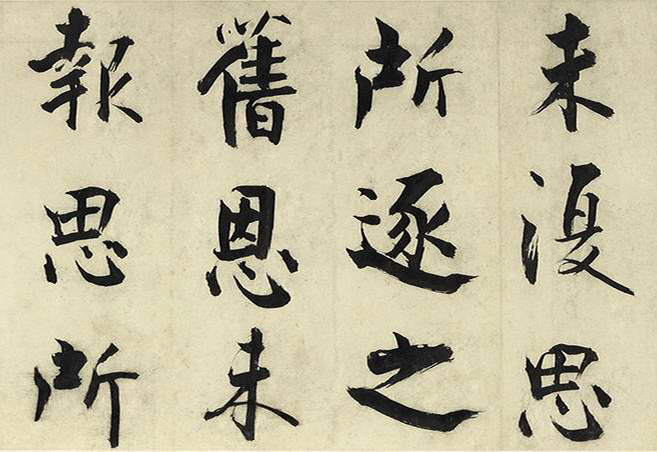 未復思
所逐之
舊恩未
報思所